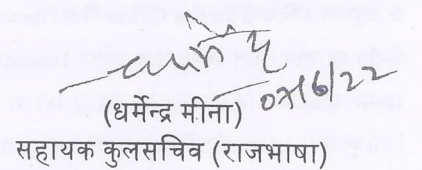 धर्मेन्द्र
07/6/22
(धर्मेन्द्र मीना)
सहायक कुलसचिव (राजभाषा)